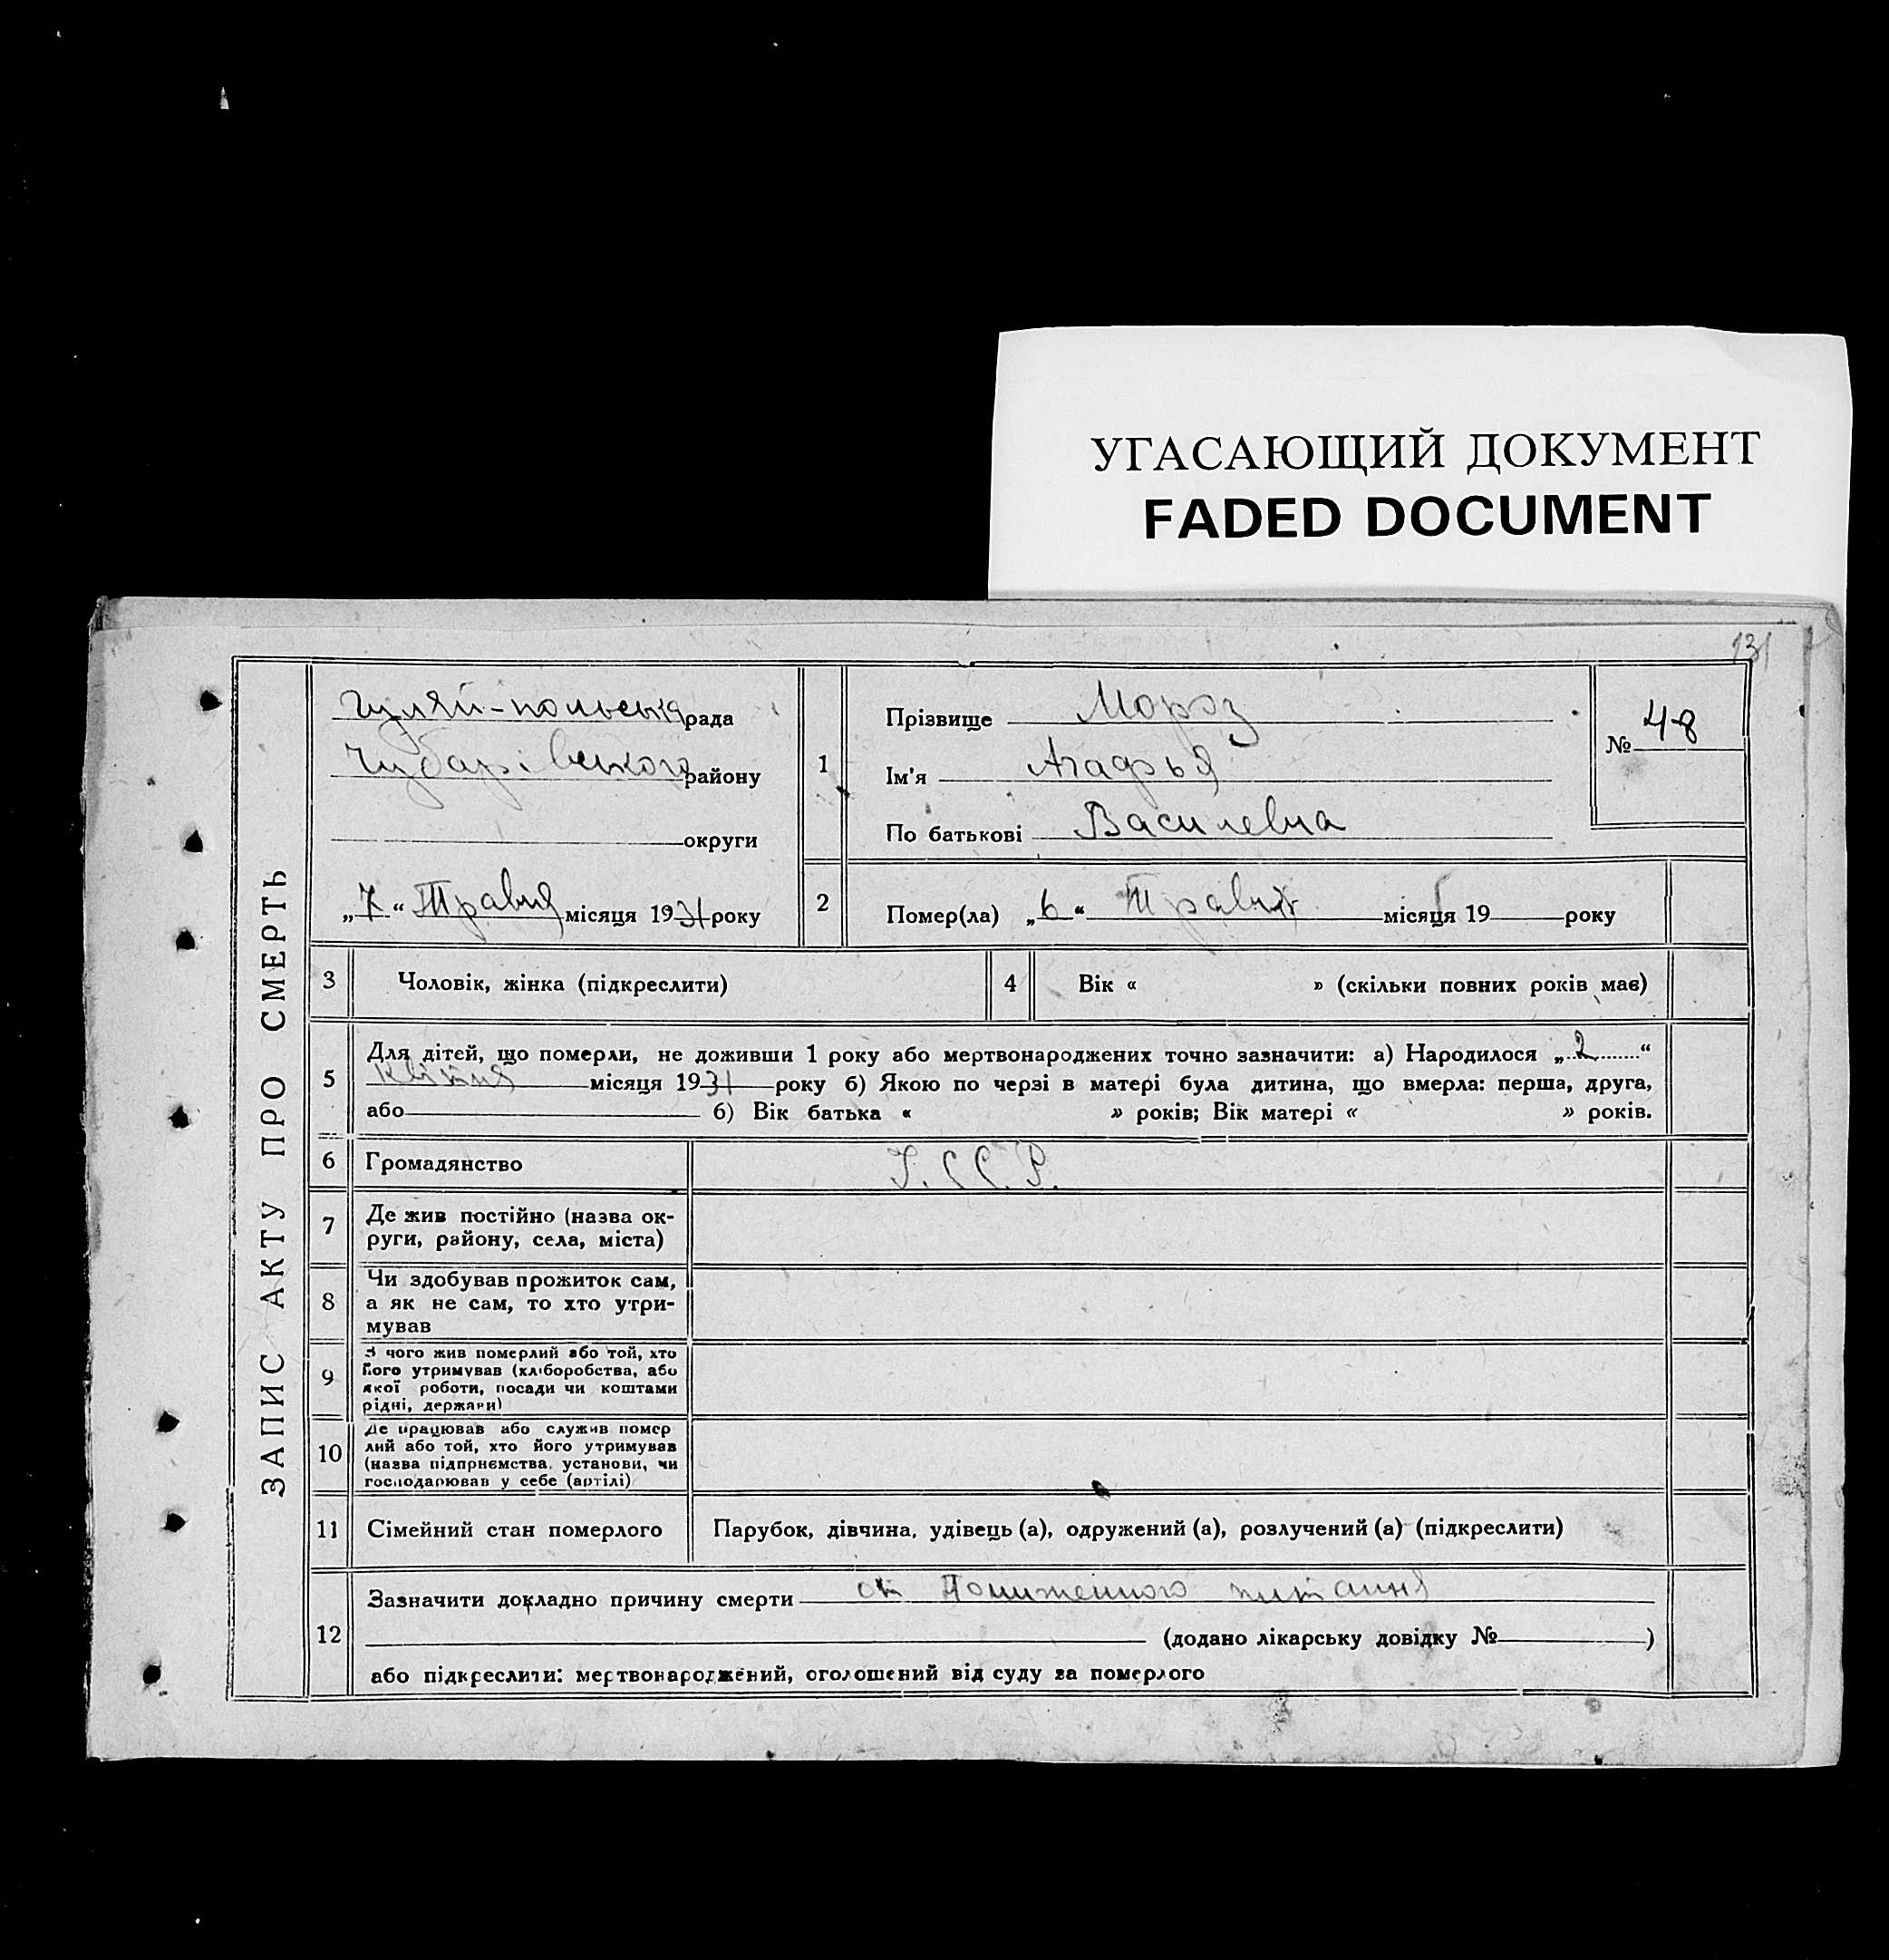 УГАСАЮЩИЙ ДОКУМЕНТ
FADED DOCUMENT
131
ЗАПИС АКТУ ПРО СМЕРТЬ
Гуляй-польська рада
Чубарівського району
округи
„7“ Травня місяця 1931 року
1
Прізвище Мороз
Ім'я Агафья
По батькові Василевна
№ 48
2
Помер(ла) „6“ Травня місяця 19 року
3
Чоловік, жінка (підкреслити)
4
Вік « » (скільки повних років має)
5
Для дітей, що померли, не доживши 1 року або мертвонароджених точно зазначити: а) Народилося „2“
Квітня місяця 1931 року б) Якою по черзі в матері була дитина, що вмерла: перша, друга,
або б) Вік батька « » років; Вік матері « » років.
6
Громадянство
У.С.С.Р.
7
Де жив постійно (назва ок-
руги, району, села, міста)
8
Чи здобував прожиток сам,
а як не сам, то хто утри-
мував
9
З чого жив померлий або той, хто
його утримував (хліборобства, або
якої роботи, посади чи коштами
рідні, держави)
10
Де працював або служив помер
лий або той, хто його утримував
(назва підприємства, установи, чи
господарював у себе (артілі)
11
Сімейний стан померлого
Парубок, дівчина, удівець (а), одружений (а), розлучений (а) (підкреслити)
12
Зазначити докладно причину смерти от пониженного питання
(додано лікарську довідку № )
або підкреслити: мертвонароджений, оголошений від суду за померлого